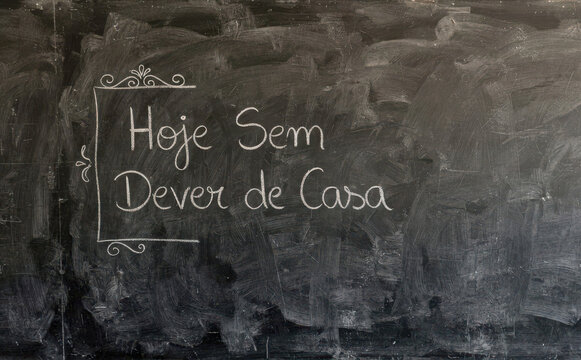 Hoje Sem
Dever de Casa